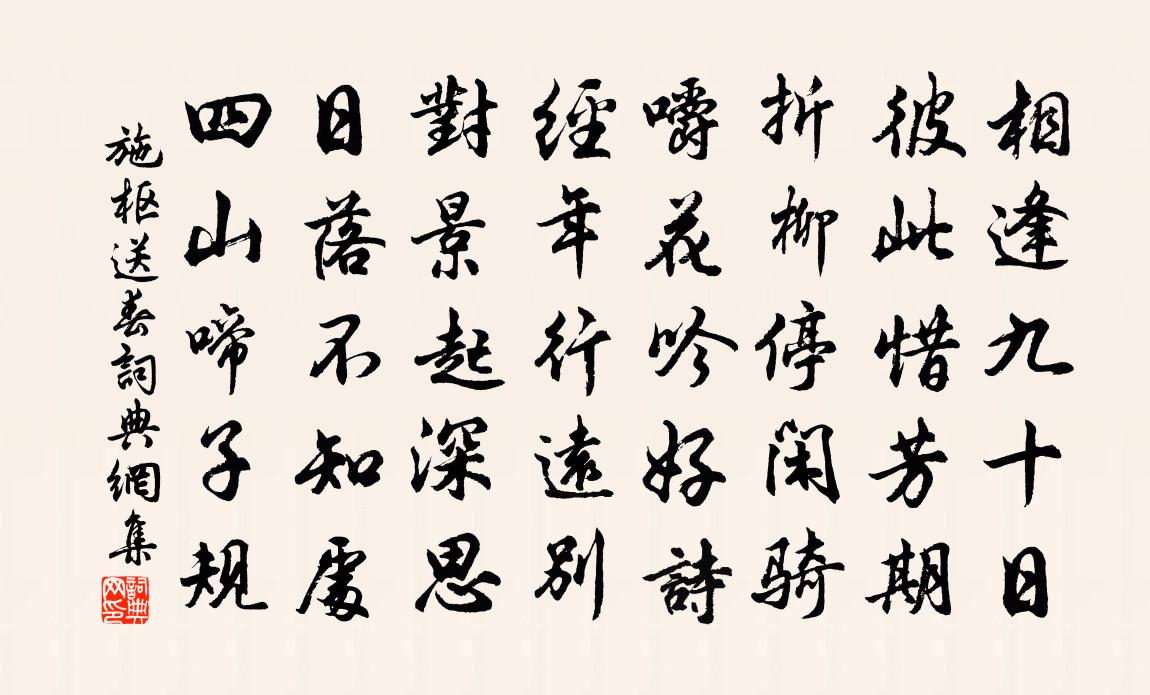 相逢九十日
彼此惜芳期
折柳停闲骑
嚼花吟好詩
經年行遠別
對景起深思
日落不知處
四山啼子規
施枢送春詞典網集
詞典网印